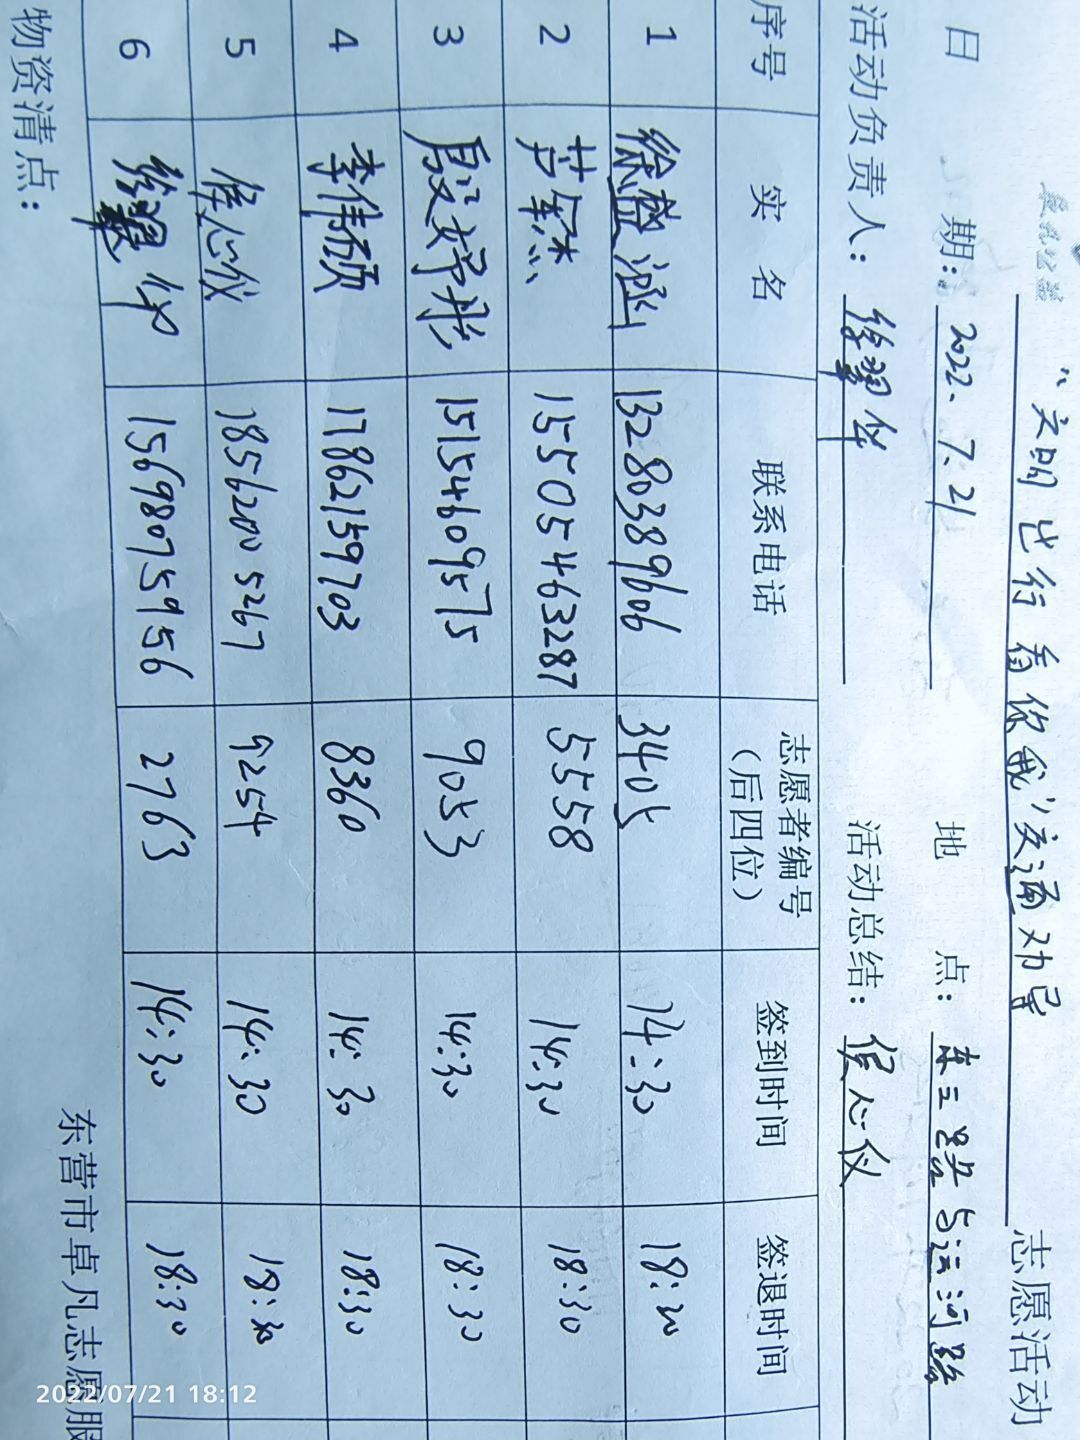 “文明出行 看你我”交通劝导 志愿活动
日 期: 2022.7.21 地 点: 东三路与运河路
活动负责人: 徐翠华 活动总结: 侯心仪
序号 实 名 联系电话 志愿者编号(后四位) 签到时间 签退时间
1 徐盛涵 13280389606 3405 14:30 18:30
2 芦鑫杰 15505463287 5558 14:30 18:30
3 殷文婷彤 15154609575 9053 14:30 18:30
4 李伟硕 17862159703 8360 14:30 18:30
5 侯心仪 18562005267 9254 14:30 18:30
6 徐翠华 15698075956 2763 14:30 18:30
物资清点:
东营市卓凡志愿服
2022/07/21 18:12